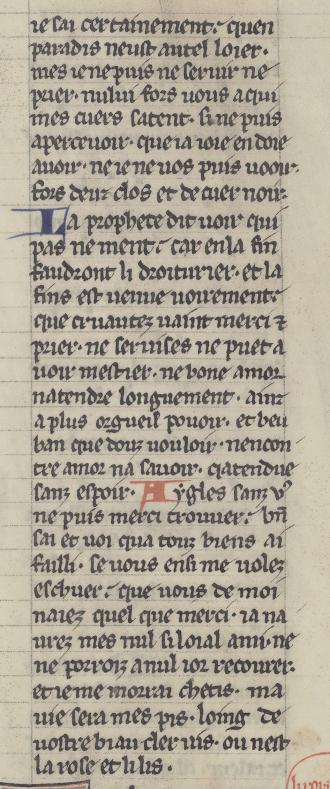 ie sai certainement. quen
paradis neust autel loier.
mes ie ne puis ne seruir ne
prier. nului fors vous a qui
mes cuers satent. si ne puis
apercevoir. que ia ioie en doie
auoir. ne ie ne vos puis voou
fors deus clos et de cuer noir.
La prophete dit voir qui
pas ne ment. car en la fin
faudront li droiturier. et la
fins est venue voirement.
que cruautez vaint merci ⁊
prier. ne seruises ne puet a
uoir mestier. ne bone amor
natendre longuement. ainz
a plus orgueil pouoir. et beu
ban que douz vouloir. nencon
tre amor na sauoir. qatendue
sanz espoir. Aygles sanz v9
ne puis merci trouver. bn̄
sai et voi qua touz biens ai
failli. se vous ensi me volez
eschiuer. que vous de moi
naiez quel que merci. ia na
urez mes nul si loial ami. ne
ne porroiz a nul ior recourer.
et ie me morrai chetis. ma
vie sera mes pis. loing de
vostre biau cler vis. ou nest
la rose et li lis.